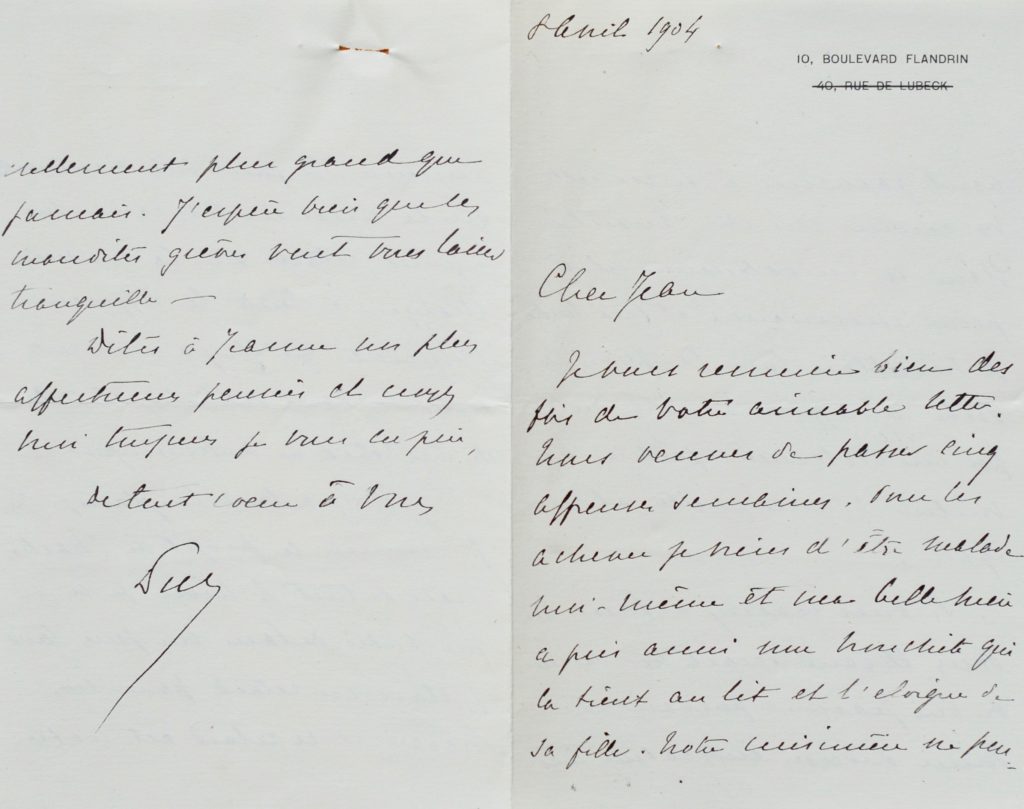 8 avril 1904
10, BOULEVARD FLANDRIN
40, RUE DE LUBECK
Cher Jean
Je vous remercie bien des
fois de votre aimable lettre.
Nous venons de passer cinq
affreuses semaines. Pour les
achever je viens d'être malade
moi-même et ma belle mère
a pris aussi une bronchite qui
la tient au lit et l'éloigne de
sa fille. Notre cuisinière ne peu-
ellement plus grand que
jamais. J'espère bien que les
maudites grèves vont vous laisser
tranquille —
Dites à Jeanne nos plus
affectueuses pensées et croyez
moi toujours je vous en prie,
de tout coeur à vous